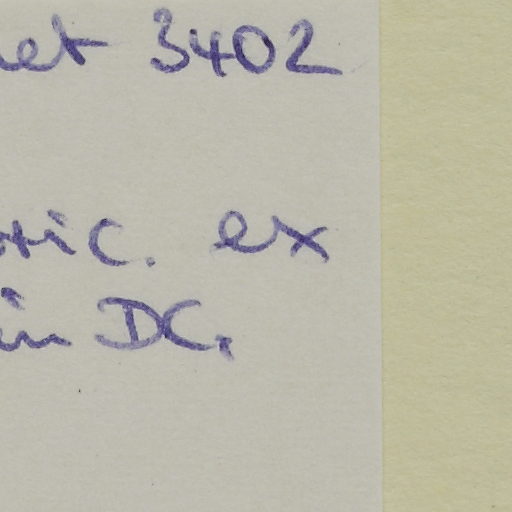 et 3402
ic. ex
in DC.